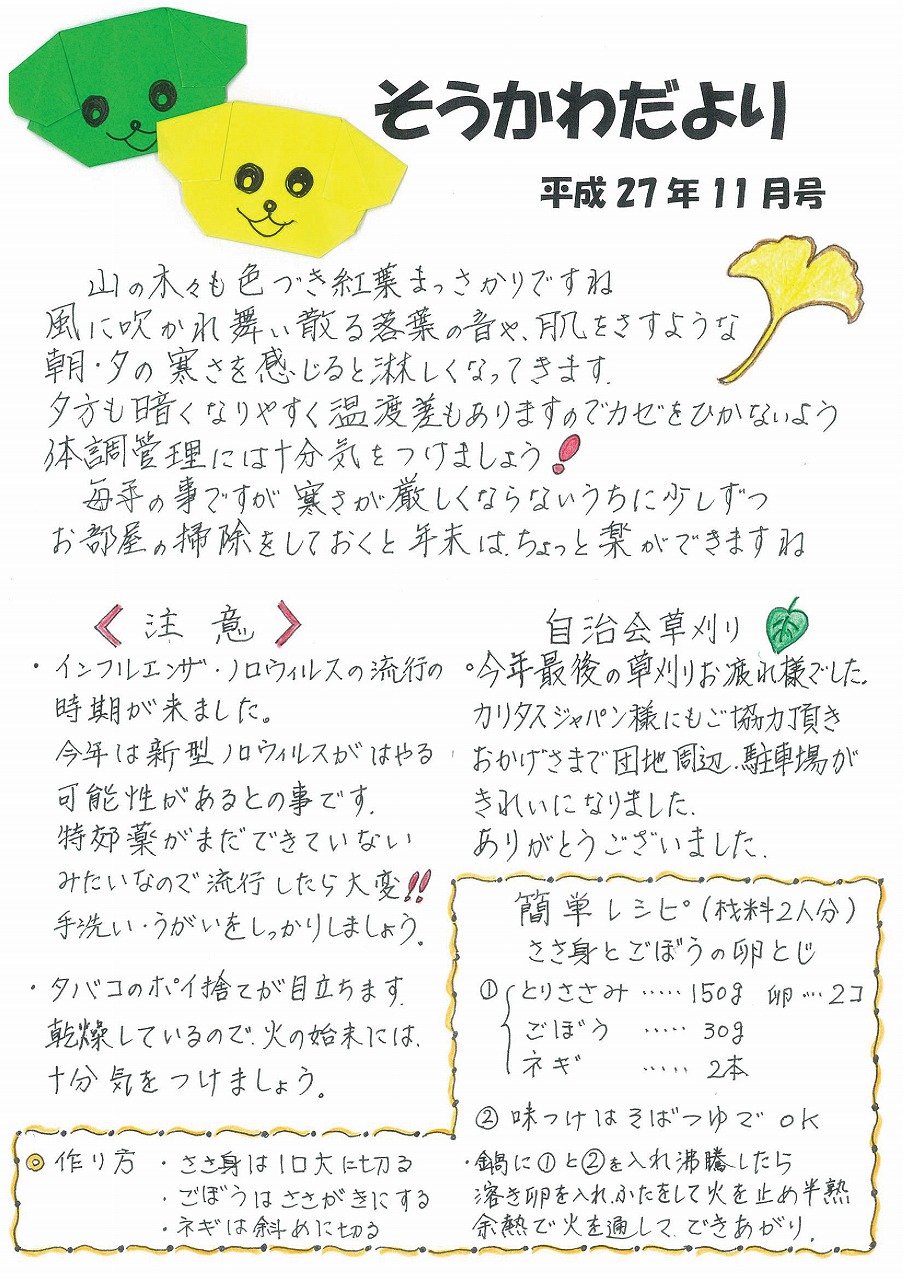 そうかわだより
平成27年11月号
山の木々も色づき紅葉まっさかりですね
風に吹かれ舞い散る落葉の音や、肌をさすような
朝・夕の寒さを感じると淋しくなってきます.
夕方も暗くなりやすく温渡差もありますのでカゼをひかないよう
体調管理には十分気をつけましょう!
毎年の事ですが寒さが厳しくならないうちに少しずつ
お部屋の掃除をしておくと年末は、ちょっと楽ができますね
〈注意〉
・インフルエンザ・ノロウィルスの流行の
時期が来ました。
今年は新型ノロウィルスがはやる
可能性があるとの事です.
特効薬がまだできていない
みたいなので流行したら大変!!
手洗い・うがいをしっかりしましょう.
・タバコのポイ捨てが目立ちます.
乾燥しているので、火の始末には、
十分気をつけましょう。
自治会草刈り
・今年最後の草刈りお疲れ様でした.
カリタスジャパン様にもご協力頂き
おかげさまで団地周辺、駐車場が
きれいになりました.
ありがとうございました.
簡単レシピ(材料2人分)
ささ身とごぼうの卵とじ
① とりささみ ····· 150g 卵 ··· 2コ
ごぼう ····· 30g
ネギ ····· 2本
② 味つけはそばつゆでOK
◎作り方 ・ささ身は1口大に切る
・ごぼうはささがきにする
・ネギは斜めに切る
・鍋に①と②を入れ沸騰したら
溶き卵を入れ、ふたをして火を止め半熟
余熱で火を通して、できあがり.